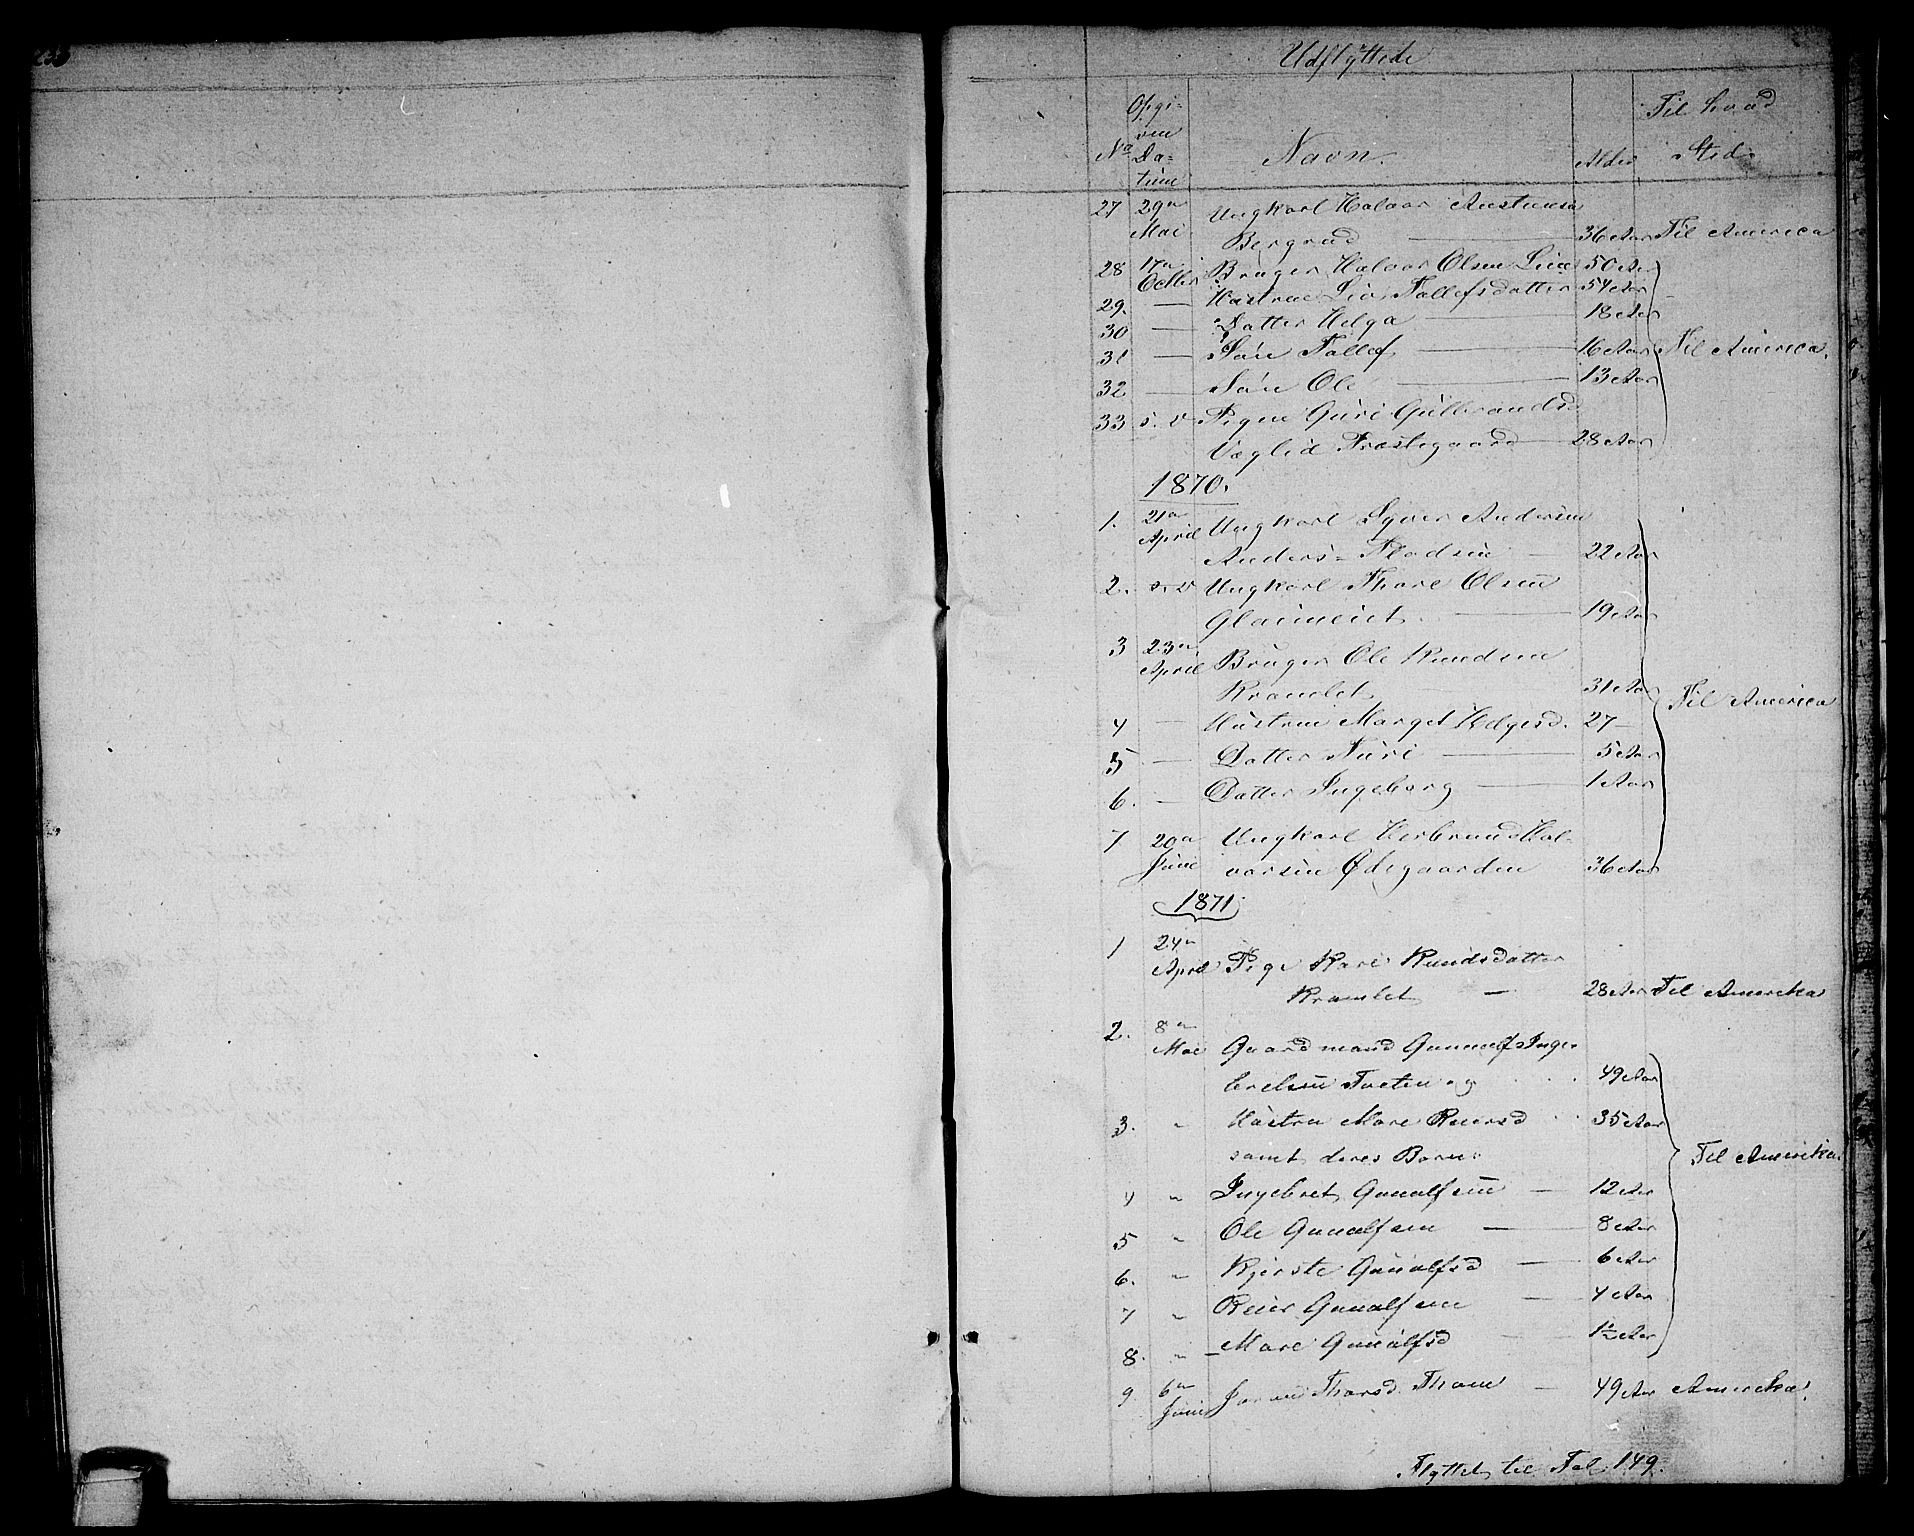 Udflyttede
No
Opgi-
ven
Da-
tum
Navn.
Alder
Til hvad
Sted
27 29n Mai Ungkarl Halvor Austensen
Bergrud 36 Aar Til America
28 17n Octbr Bruger Halvor Olsen Lien 50 Aar
29. — Hustrue Liv Tollefsdatter 54 Aar
30 — Datter Helga — 18 Aar
31 — Søn Tollef — 16 Aar Til America.
32 — Søn Ole — 13 Aar
33 s. D Pigen Guri Gulbrandsd
Væglid Præstegaard — 28 Aar
1870.
1. 21n April Ungkarl Syver Andersen
Anders- Flodsin — 22 Aar
2. s. D Ungkarl Thore Olsen
19 Aar
3 23n April Bruger Ole Knudsen
Kravlet 31 Aar Til America
4 — Hustrue Marget Helgesd. 27 —
5 — Datter Turi — 5 Aar
6. — Datter Ingeborg — 1 Aar
7 20n Juni Ungkarl Herbrand Hal-
vorsen Ødegaarden 36 Aar
1871
1 24n April Pige Kari Knudsdatter
Kravlet — 28 Aar Til Amerika
2. 8n Mai Gaardmand Gunnulf Inge-
bretsen Toeten og 49 Aar
3. " Hustru Mari Reiersd 35 Aar
samt deres Børn: Til Amerika.
4 " Ingebret Gunulfsen — 12 Aar
5 " Ole Gunulfsen — 8 Aar
6. " Kjersti Gunulfsd — 6 Aar
7 " Reier Gunulfsen — 4 Aar
8. " Mari Gunulfsd — 1½ Aar
9. 6n Juni Joran Thorsd. Thoen — 49 Aar Amerika.
Flyttet til Fol. 149.